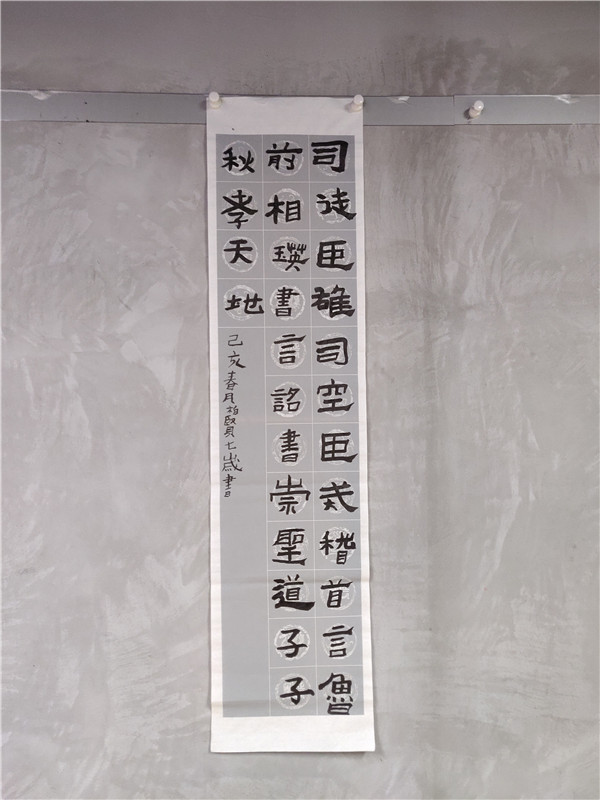 司徒臣雄司空臣戒稽首言魯
前相瑛書言詔書崇聖道子子
秋孝天地
己亥春月柏賢七歲書